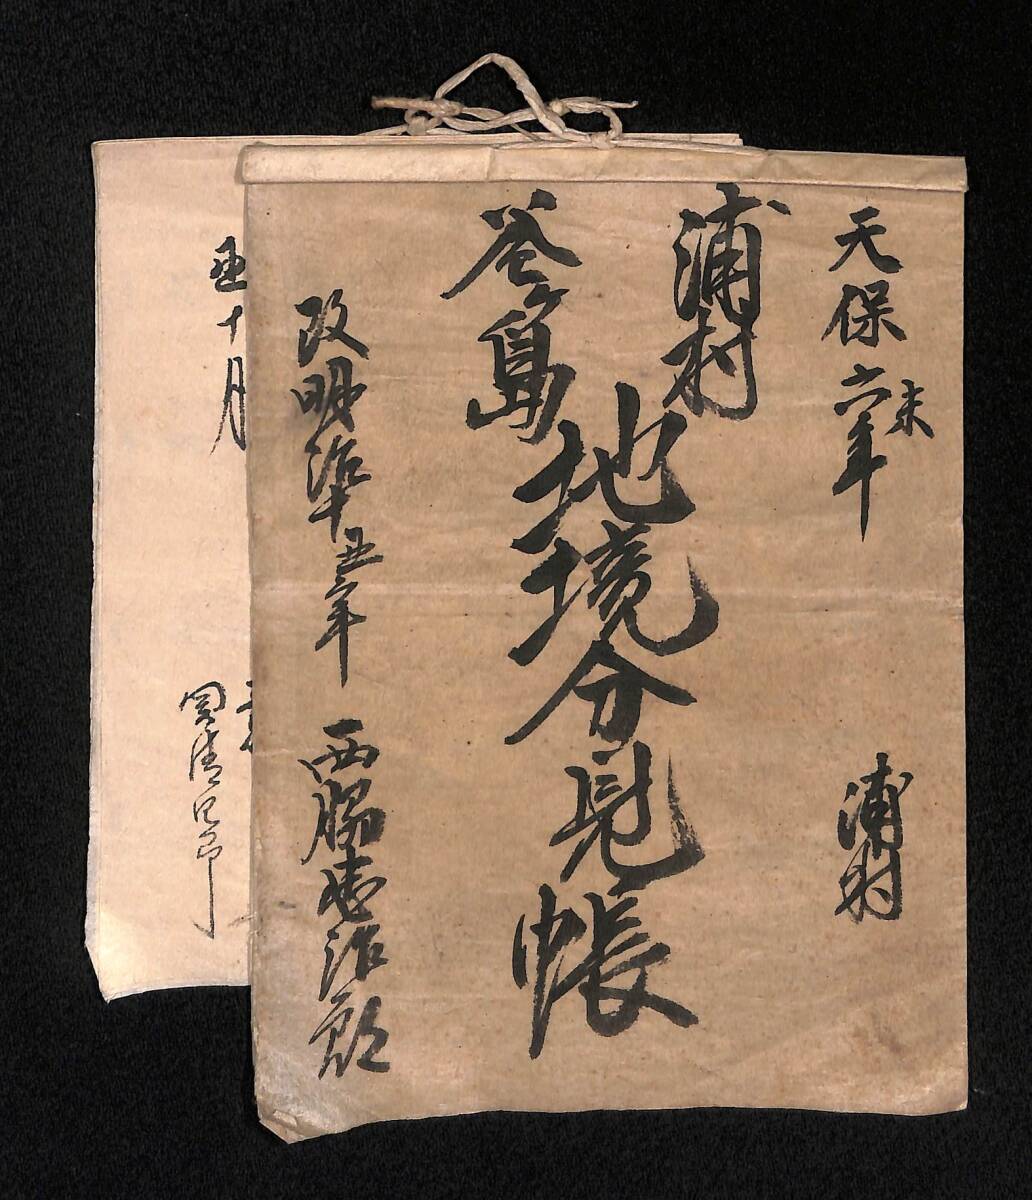 天保六年
未
浦村
浦村
釜島
地境分見帳
改明治十五年
西脇
治郎
十月